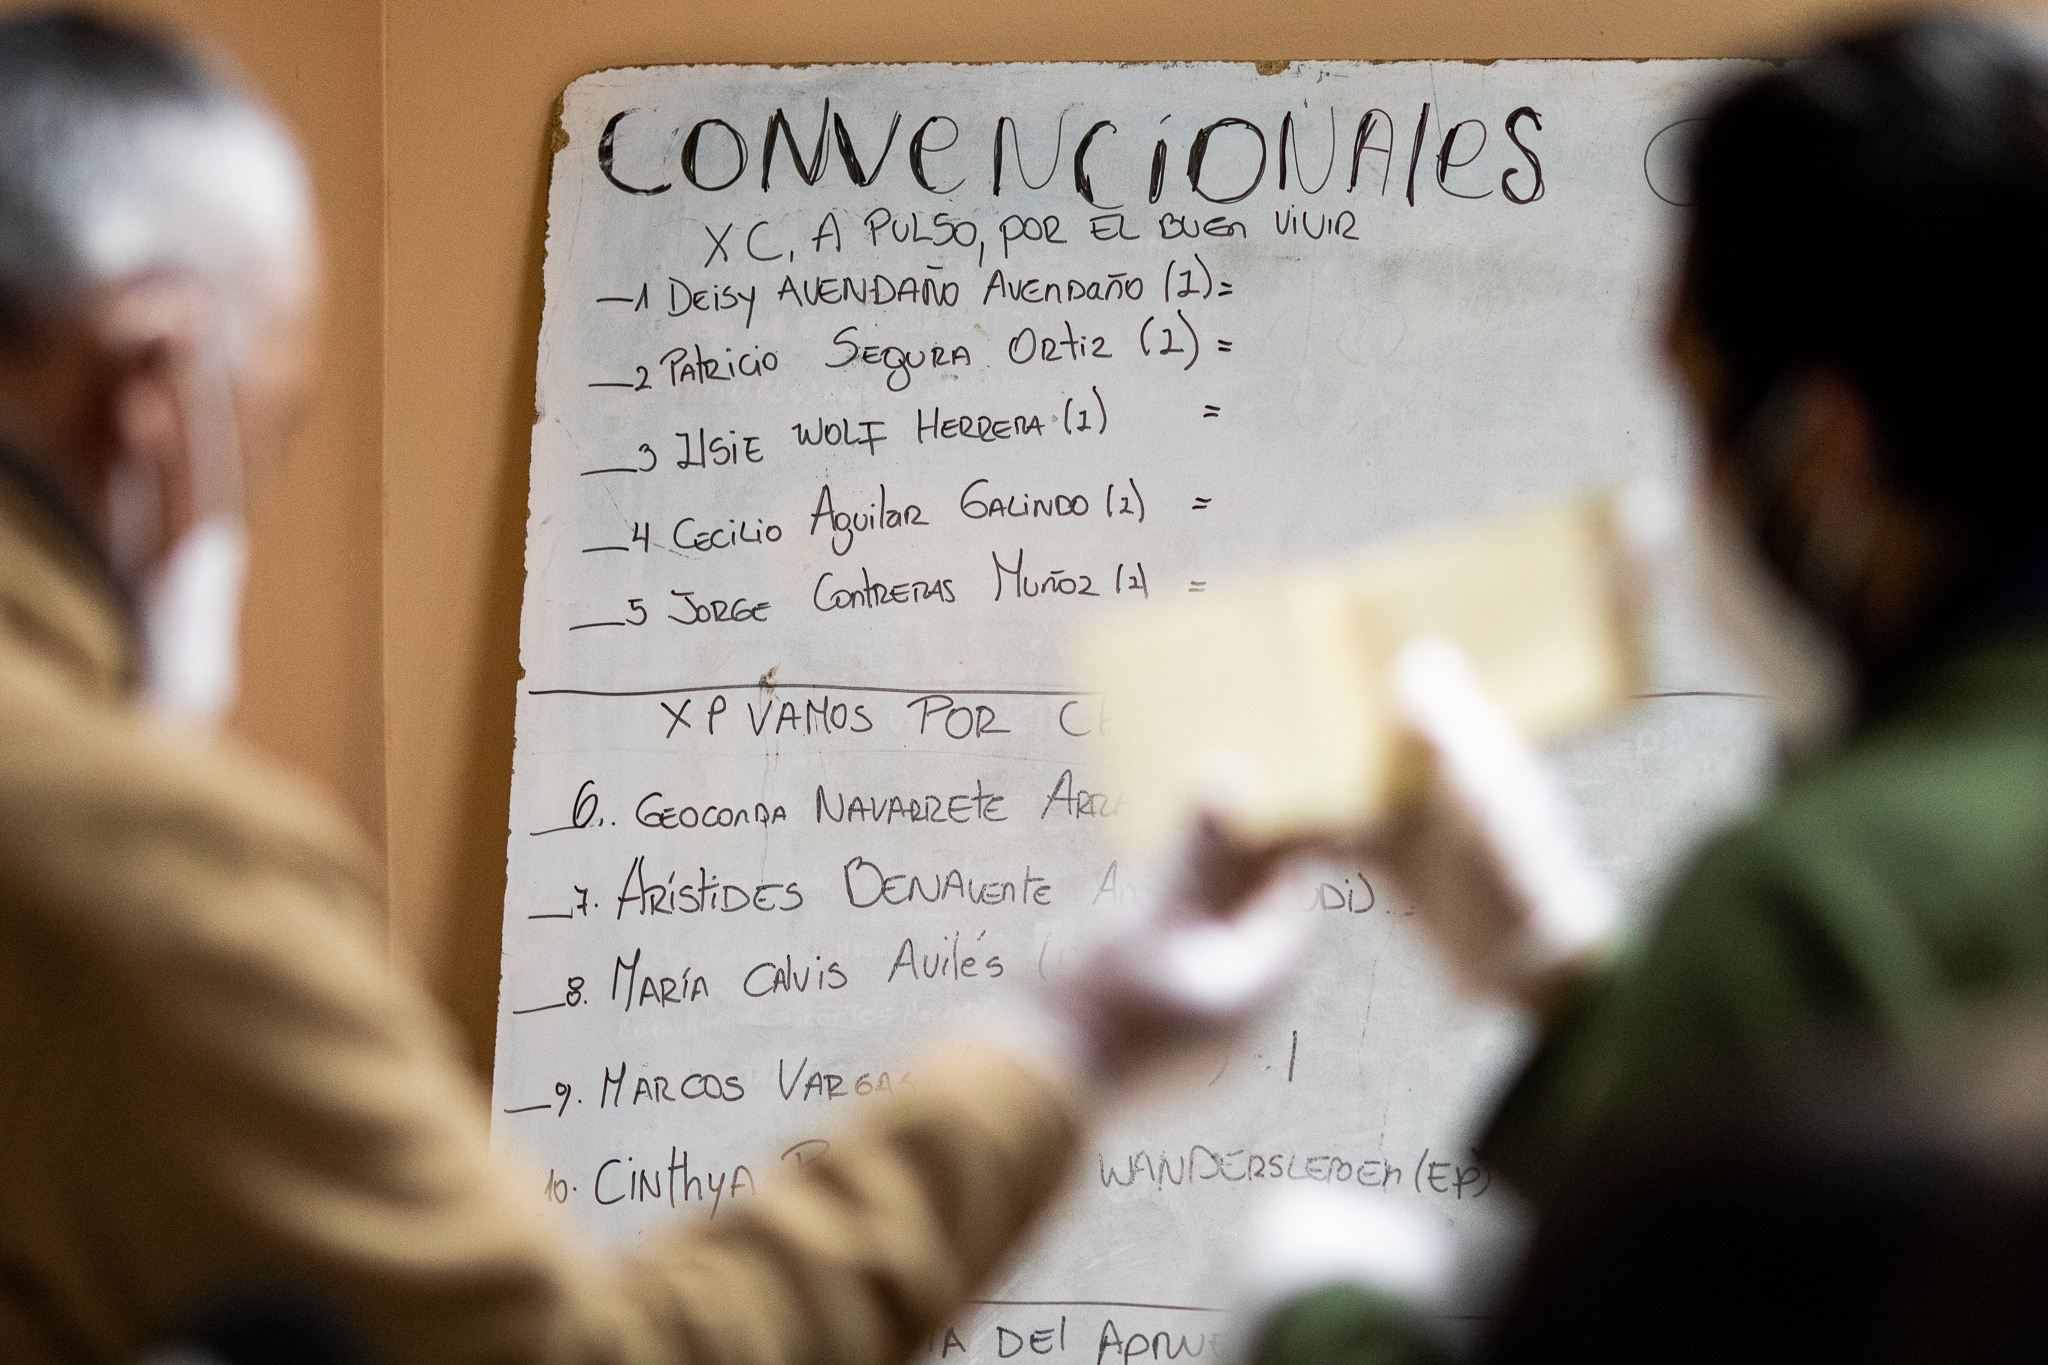 CONVENCIONALES
XC, A PULSO, POR EL BUEN VIVIR
1 DEISY AVENDAÑO AVENDAÑO (1)=
2 PATRICIO SEGURA ORTIZ (1) =
3 ILSIE WOLF HERRERA (1) =
4 CECILIO AGUILAR GALINDO (1) =
5 JORGE CONTRERAS MUÑOZ (1) =
XP VAMOS POR
6. GEOCONDA NAVARRETE
7. ARÍSTIDES BENAVENTE
8. MARÍA CALVIS AVILÉS
9. MARCOS VARGAS
10. CINTHYA WANDERSLEBEN (EP)
DEL